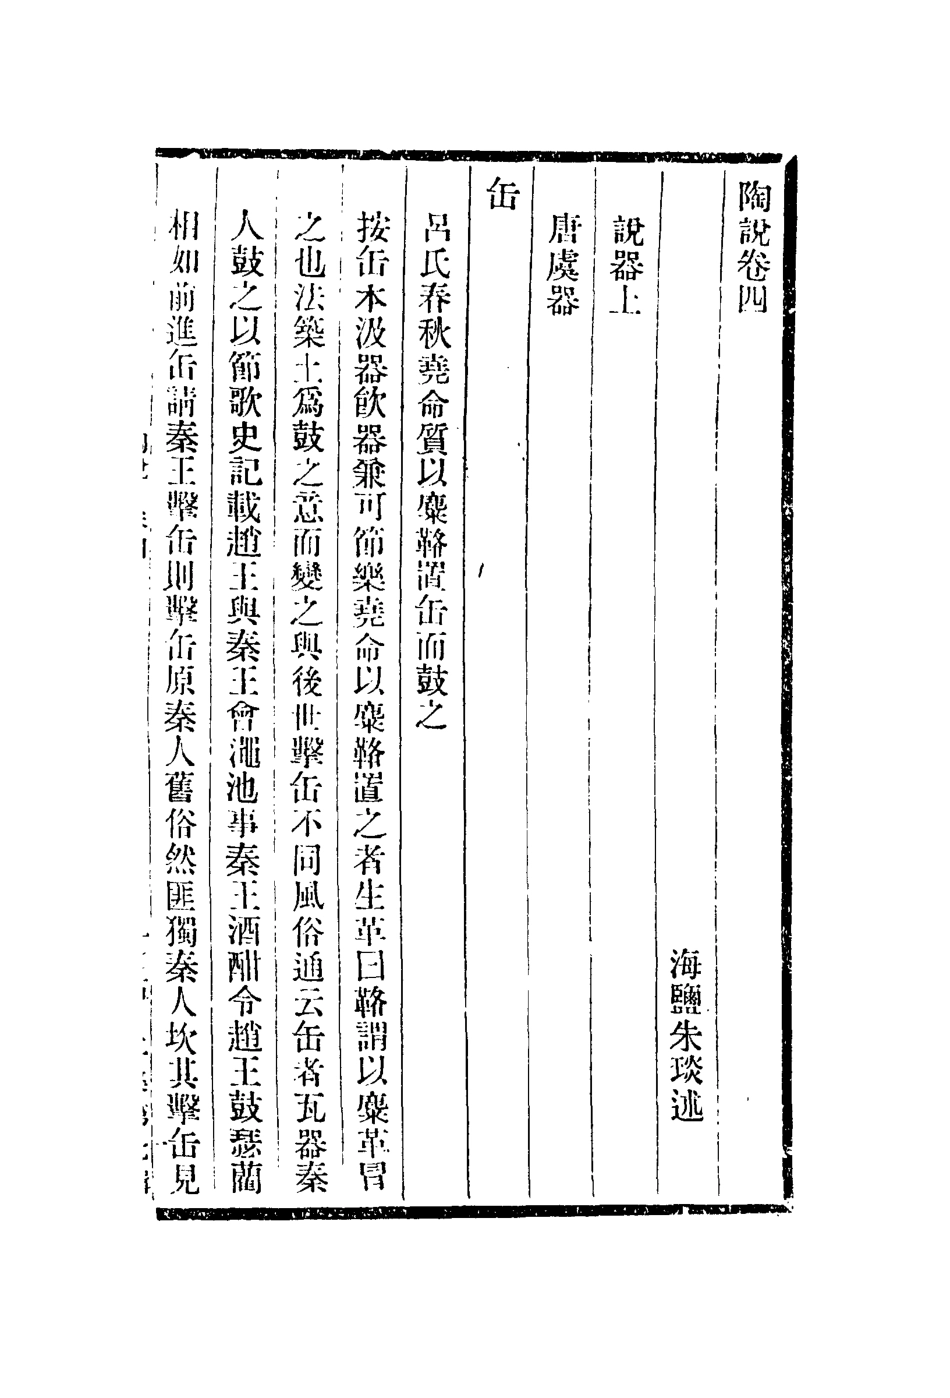 陶說卷四
海鹽朱琰述
說器上
唐虞器
缶
呂氏春秋堯命質以麋䩭置缶而鼓之
按缶本汲器飲器兼可節樂堯命以麋䩭置之者生革曰䩭謂以麋革冒
之也法築土爲鼓之意而變之與後世擊缶不同風俗通云缶者瓦器秦
人鼓之以節歌史記載趙王與秦王會澠池事秦王酒酣令趙王鼓瑟藺
相如前進缶請秦王擊缶則擊缶原秦人舊俗然匪獨秦人坎其擊缶見